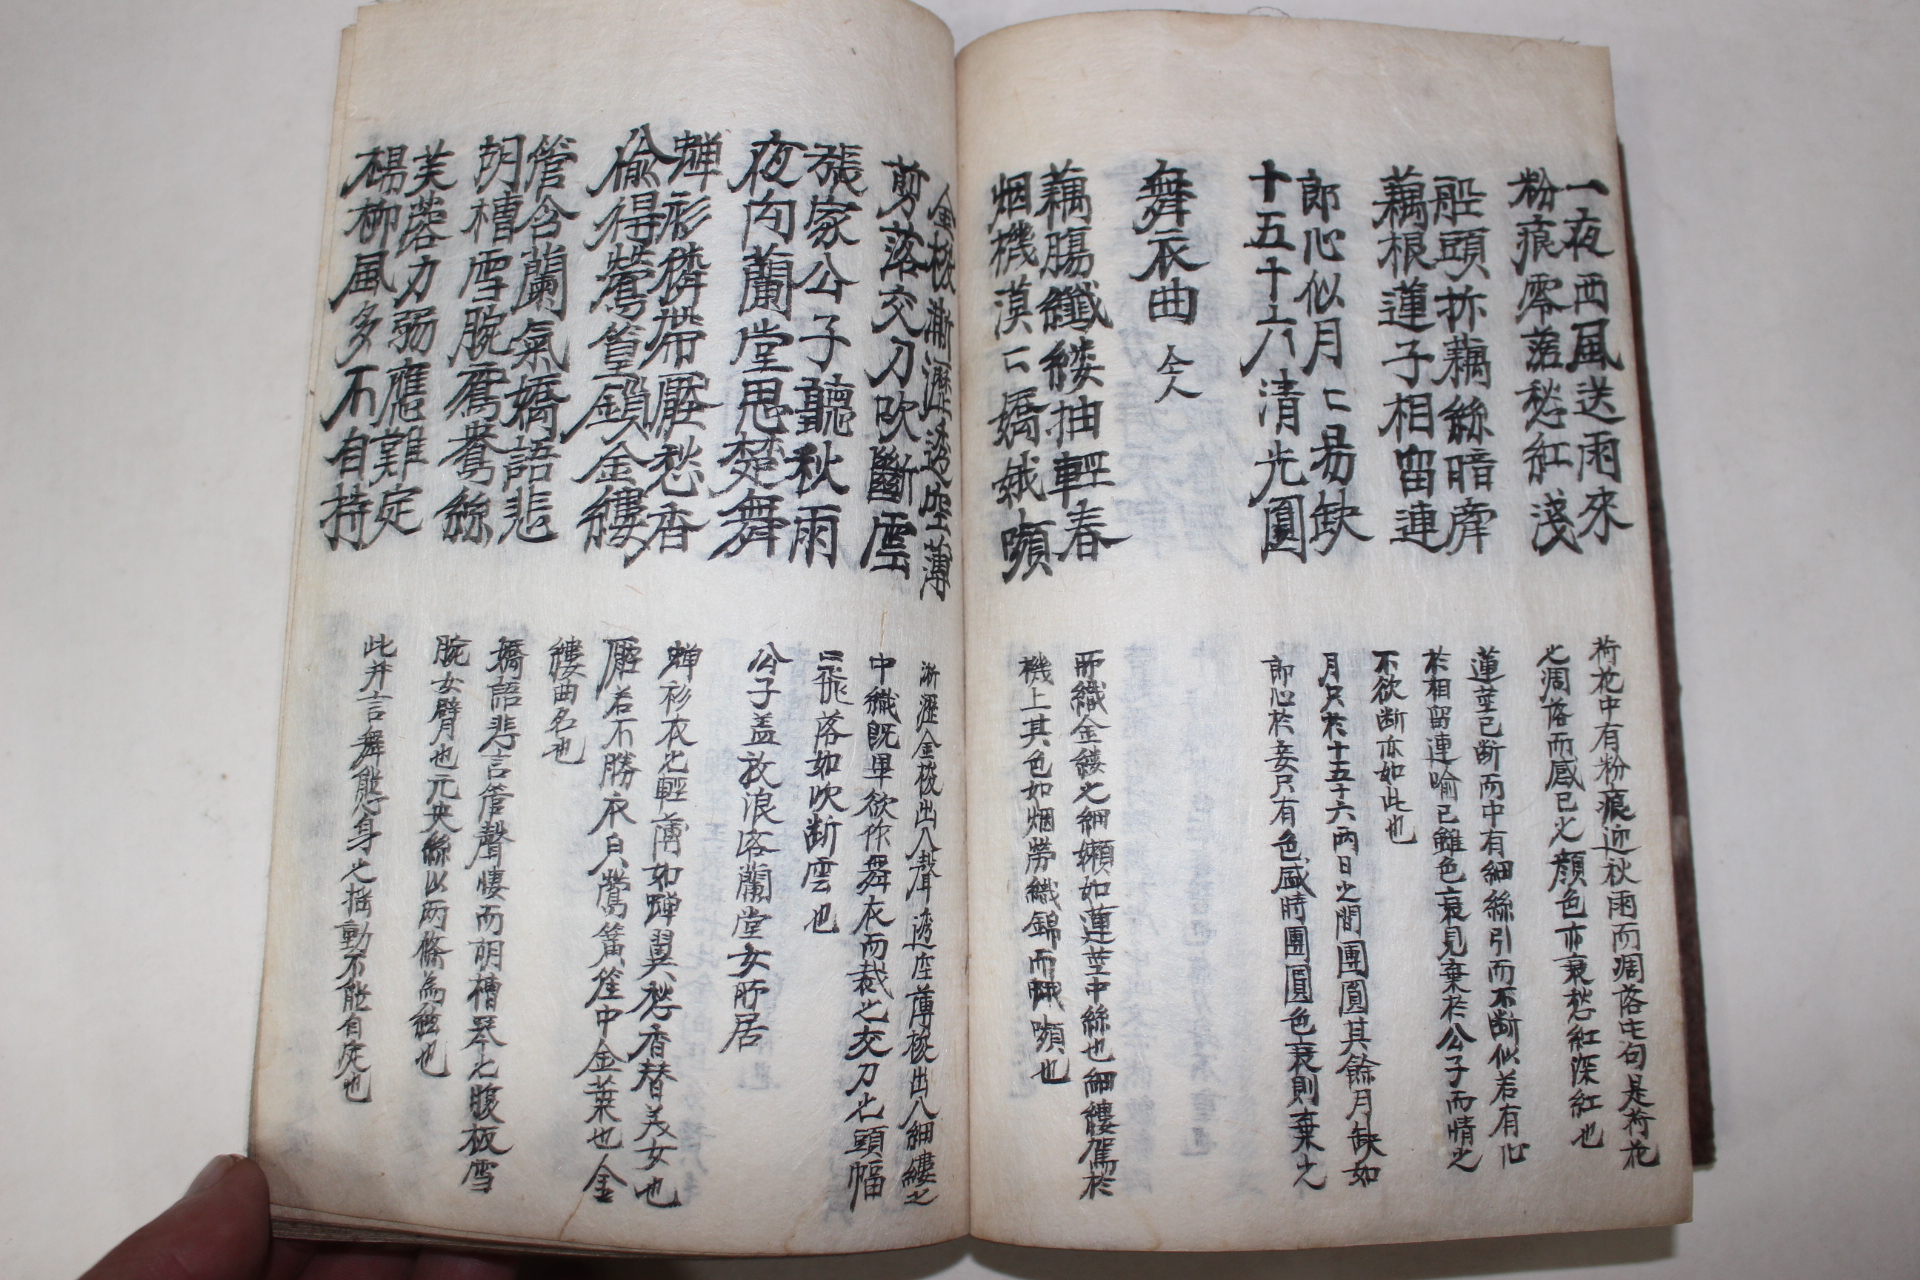 一夜西風送雨來
粉痕零落愁紅淺
船頭折藕絲暗牽
藕根蓮子相留連
郎心似月〻易缺
十五十六清光圓
舞衣曲 仝人
藕腸纖縷抽輕春
烟機漠〻嬌娥嚬
金梭淅瀝透空薄
剪落交刀吹斷雲
張家公子聽秋雨
夜向蘭堂思楚舞
蟬衫獜帶壓愁香
偸得鶯簧鎖金縷
管含蘭氣嬌語悲
胡槽雪腕鴛鴦絲
芙蓉力弱應難定
楊柳風多不自持
荷花中有粉痕迎秋雨而凋落也句是荷花
之凋落而感已之顔色亦衰愁紅深紅也
蓮莖已断而中有細絲引而不断似若有心
於相留連喻已雖色衰見棄於公子而情之
不欲断亦如此也
月只於十五十六兩日之間團圓其餘月缺如
郎心於妾只有色盛時團圓色衰則棄之
所織金縷之細纈如蓮莖中絲也細縷駕於
機上其色如烟勞織錦而嚬也
淅瀝金梭出入聲透空薄梭出入細縷之
中織既畢欲作舞衣而裁之交刀之頭幅
〻飛落如吹断雲也
公子盖放浪客蘭堂女所居
蟬衫衣之輕薄如蟬翼愁香替美女也
壓若不勝衣貝鶯簧笙中金葉也金
縷曲名也
嬌語悲言管聲悽而胡槽琴之腹板雪
腕女臂也元央絲以兩條為絃也
此并言舞態身之搖動不能自定也